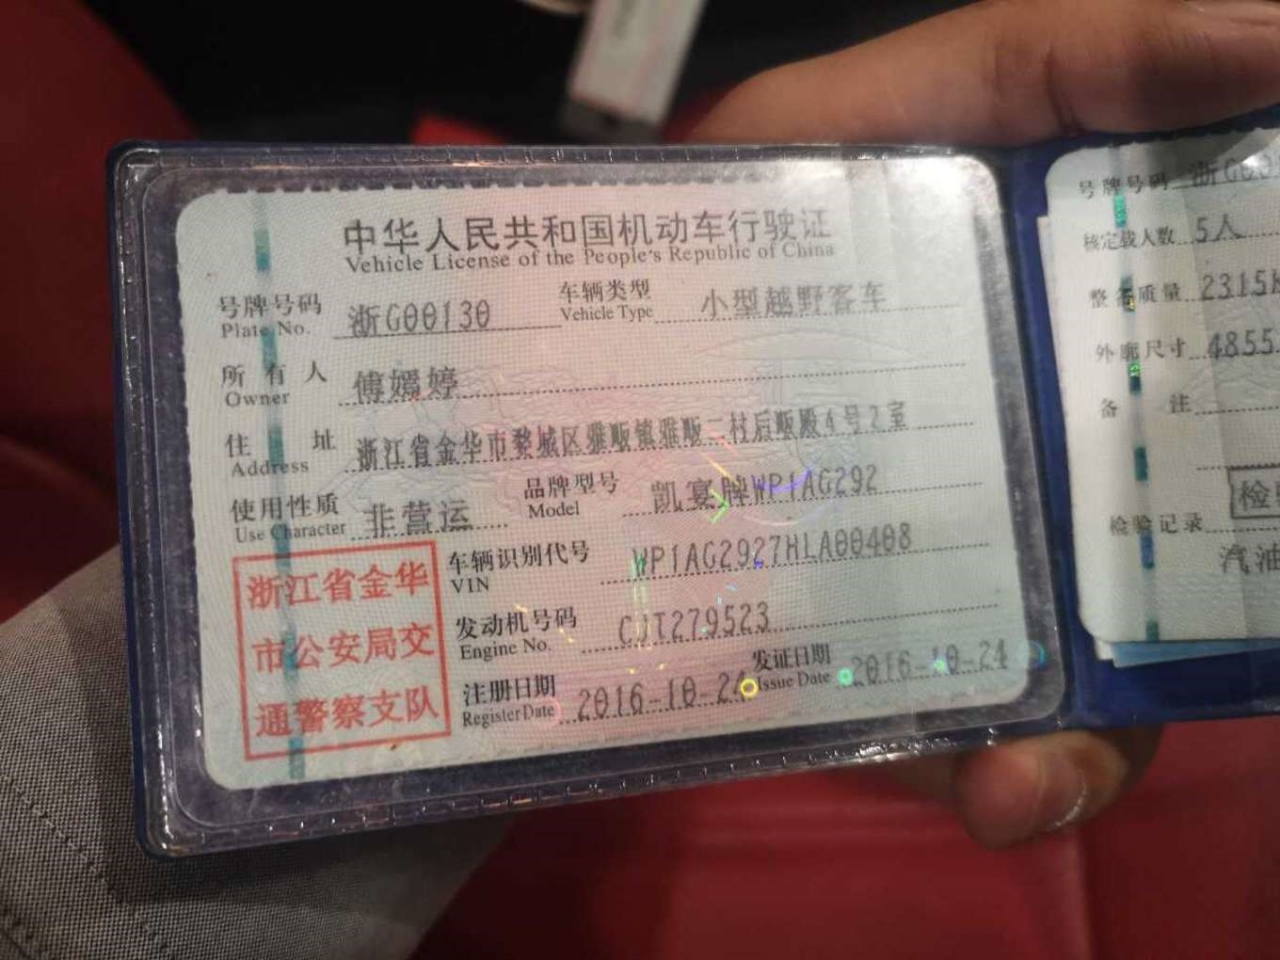 中华人民共和国机动车行驶证
Vehicle License of the People's Republic of China
号牌号码 浙G00130 车辆类型 小型越野客车
Plate No. Vehicle Type
所有人 傅嫣婷
Owner
住址 浙江省金华市婺城区雅畈镇雅畈二村后畈殿4号2室
Address
使用性质 非营运 品牌型号 凯宴牌WP1AG292
Use Character Model
车辆识别代号 WP1AG2927HLA00408
VIN
发动机号码 CJT279523
Engine No.
注册日期 2016-10-24 发证日期 2016-10-24
Register Date Issue Date
浙江省金华
市公安局交
通警察支队
号牌号码 浙G00
核定载人数 5人
整备质量 2315
外廓尺寸 4855
备注
检验记录
检
汽油